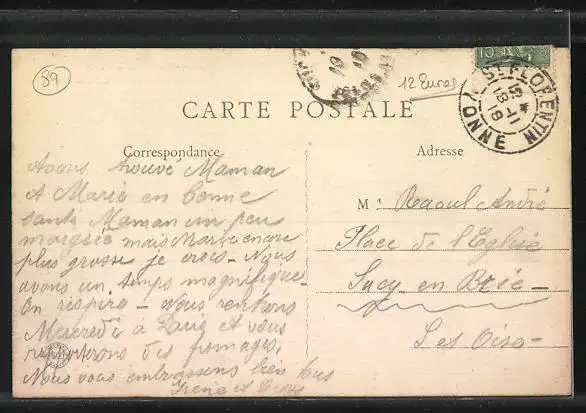 89
12 Euros
15c
ST FLORENTIN
YONNE
18-11
18
CARTE POSTALE
Correspondance
Adresse
Avons trouvé Maman
et Marie en bonne
santé Maman un peu
maigrie mais Marie encore
plus grosse je crois - Nous
avons un temps magnifique -
On respire - Nous rentrons
Mercredi à Paris et vous
des fromages,
Nous vous embrassons bien tous
Irène et
M. Raoul André
Place de l'Eglise
Sucy en Brie -
Set Oise -